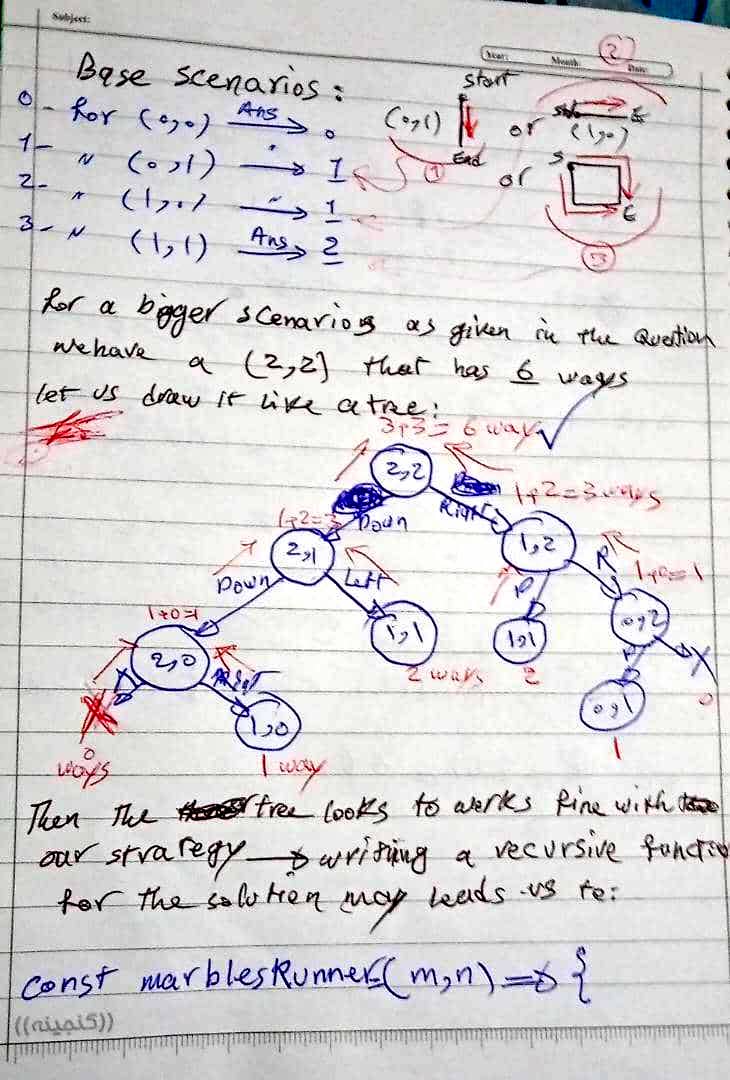 Subject:
Year: Month: Date:
2
Base scenarios:
0- for (0,0) Ans 0
1- " (0,1) " 1
2- " (1,0) " 1
3- " (1,1) Ans 2
start
(0,1)
End
1
or
E
(1,0)
or
S
E
3
for a bigger scenarios as given in the Question
we have a (2,2) that has 6 ways
let us draw it like a tree:
3+3=6 way
2,2
1+2=3 Down Right 1+2=3 ways
2,1
1,2
Down Left
D R 1+0=1
1+0=1
2,0
1,1
1,1
0,2
2 ways
2
0
Right
D
1,0
0,1
0
ways
1 way
1
Then the tree looks to werks fine with
our strategy writing a recursive function
for the solution may leads us to:
const marblesRunner=(m,n) => {
((گنجینه))